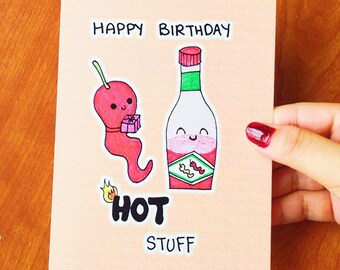 HAPPY BIRTHDAY
HOT
STUFF